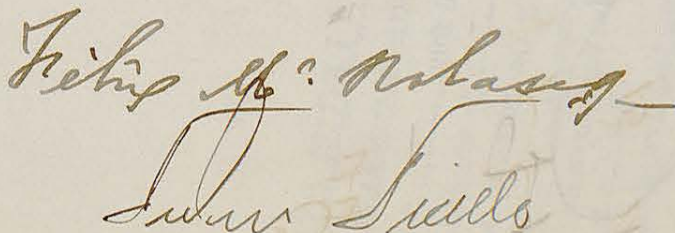 Félix Mª Nolasco
Juan Tirello